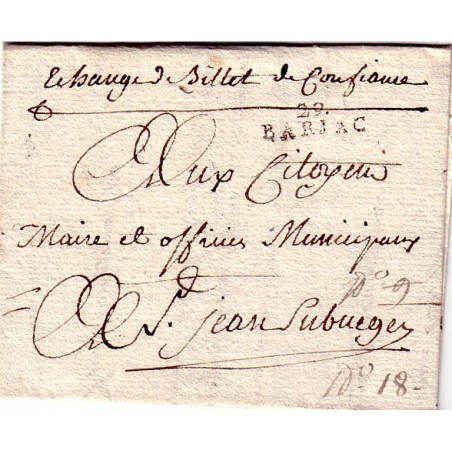 Echange de Billet de Confiance
29.
BARJAC
Aux Citoyens
Maire et officiers Municipaux
No 9
A St. jean
No 18-